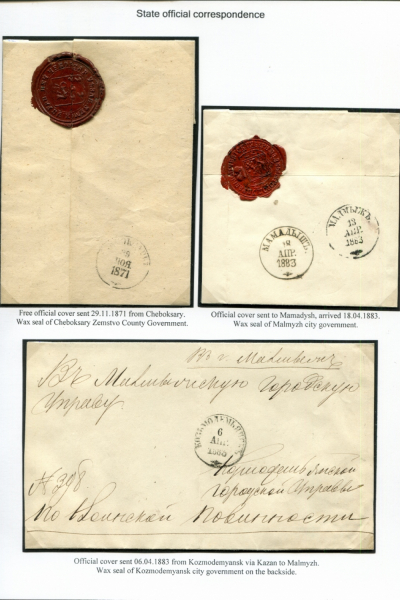 State official correspondence
НОЯ
1871
Free official cover sent 29.11.1871 from Cheboksary.
Wax seal of Cheboksary Zemstvo County Government.
МАМАДЫШЪ
АПР.
1883
МАЛМЫЖЪ
13
АПР.
1883
Official cover sent to Mamadysh, arrived 18.04.1883.
Wax seal of Malmyzh city government.
Въ г. Малмыжъ
Въ Малмыжскую Городскую
Управу
6
АПР.
Козмодемьянской
Городской Управы
№ 308.
по Воинской Повинности
Official cover sent 06.04.1883 from Kozmodemyansk via Kazan to Malmyzh.
Wax seal of Kozmodemyansk city government on the backside.